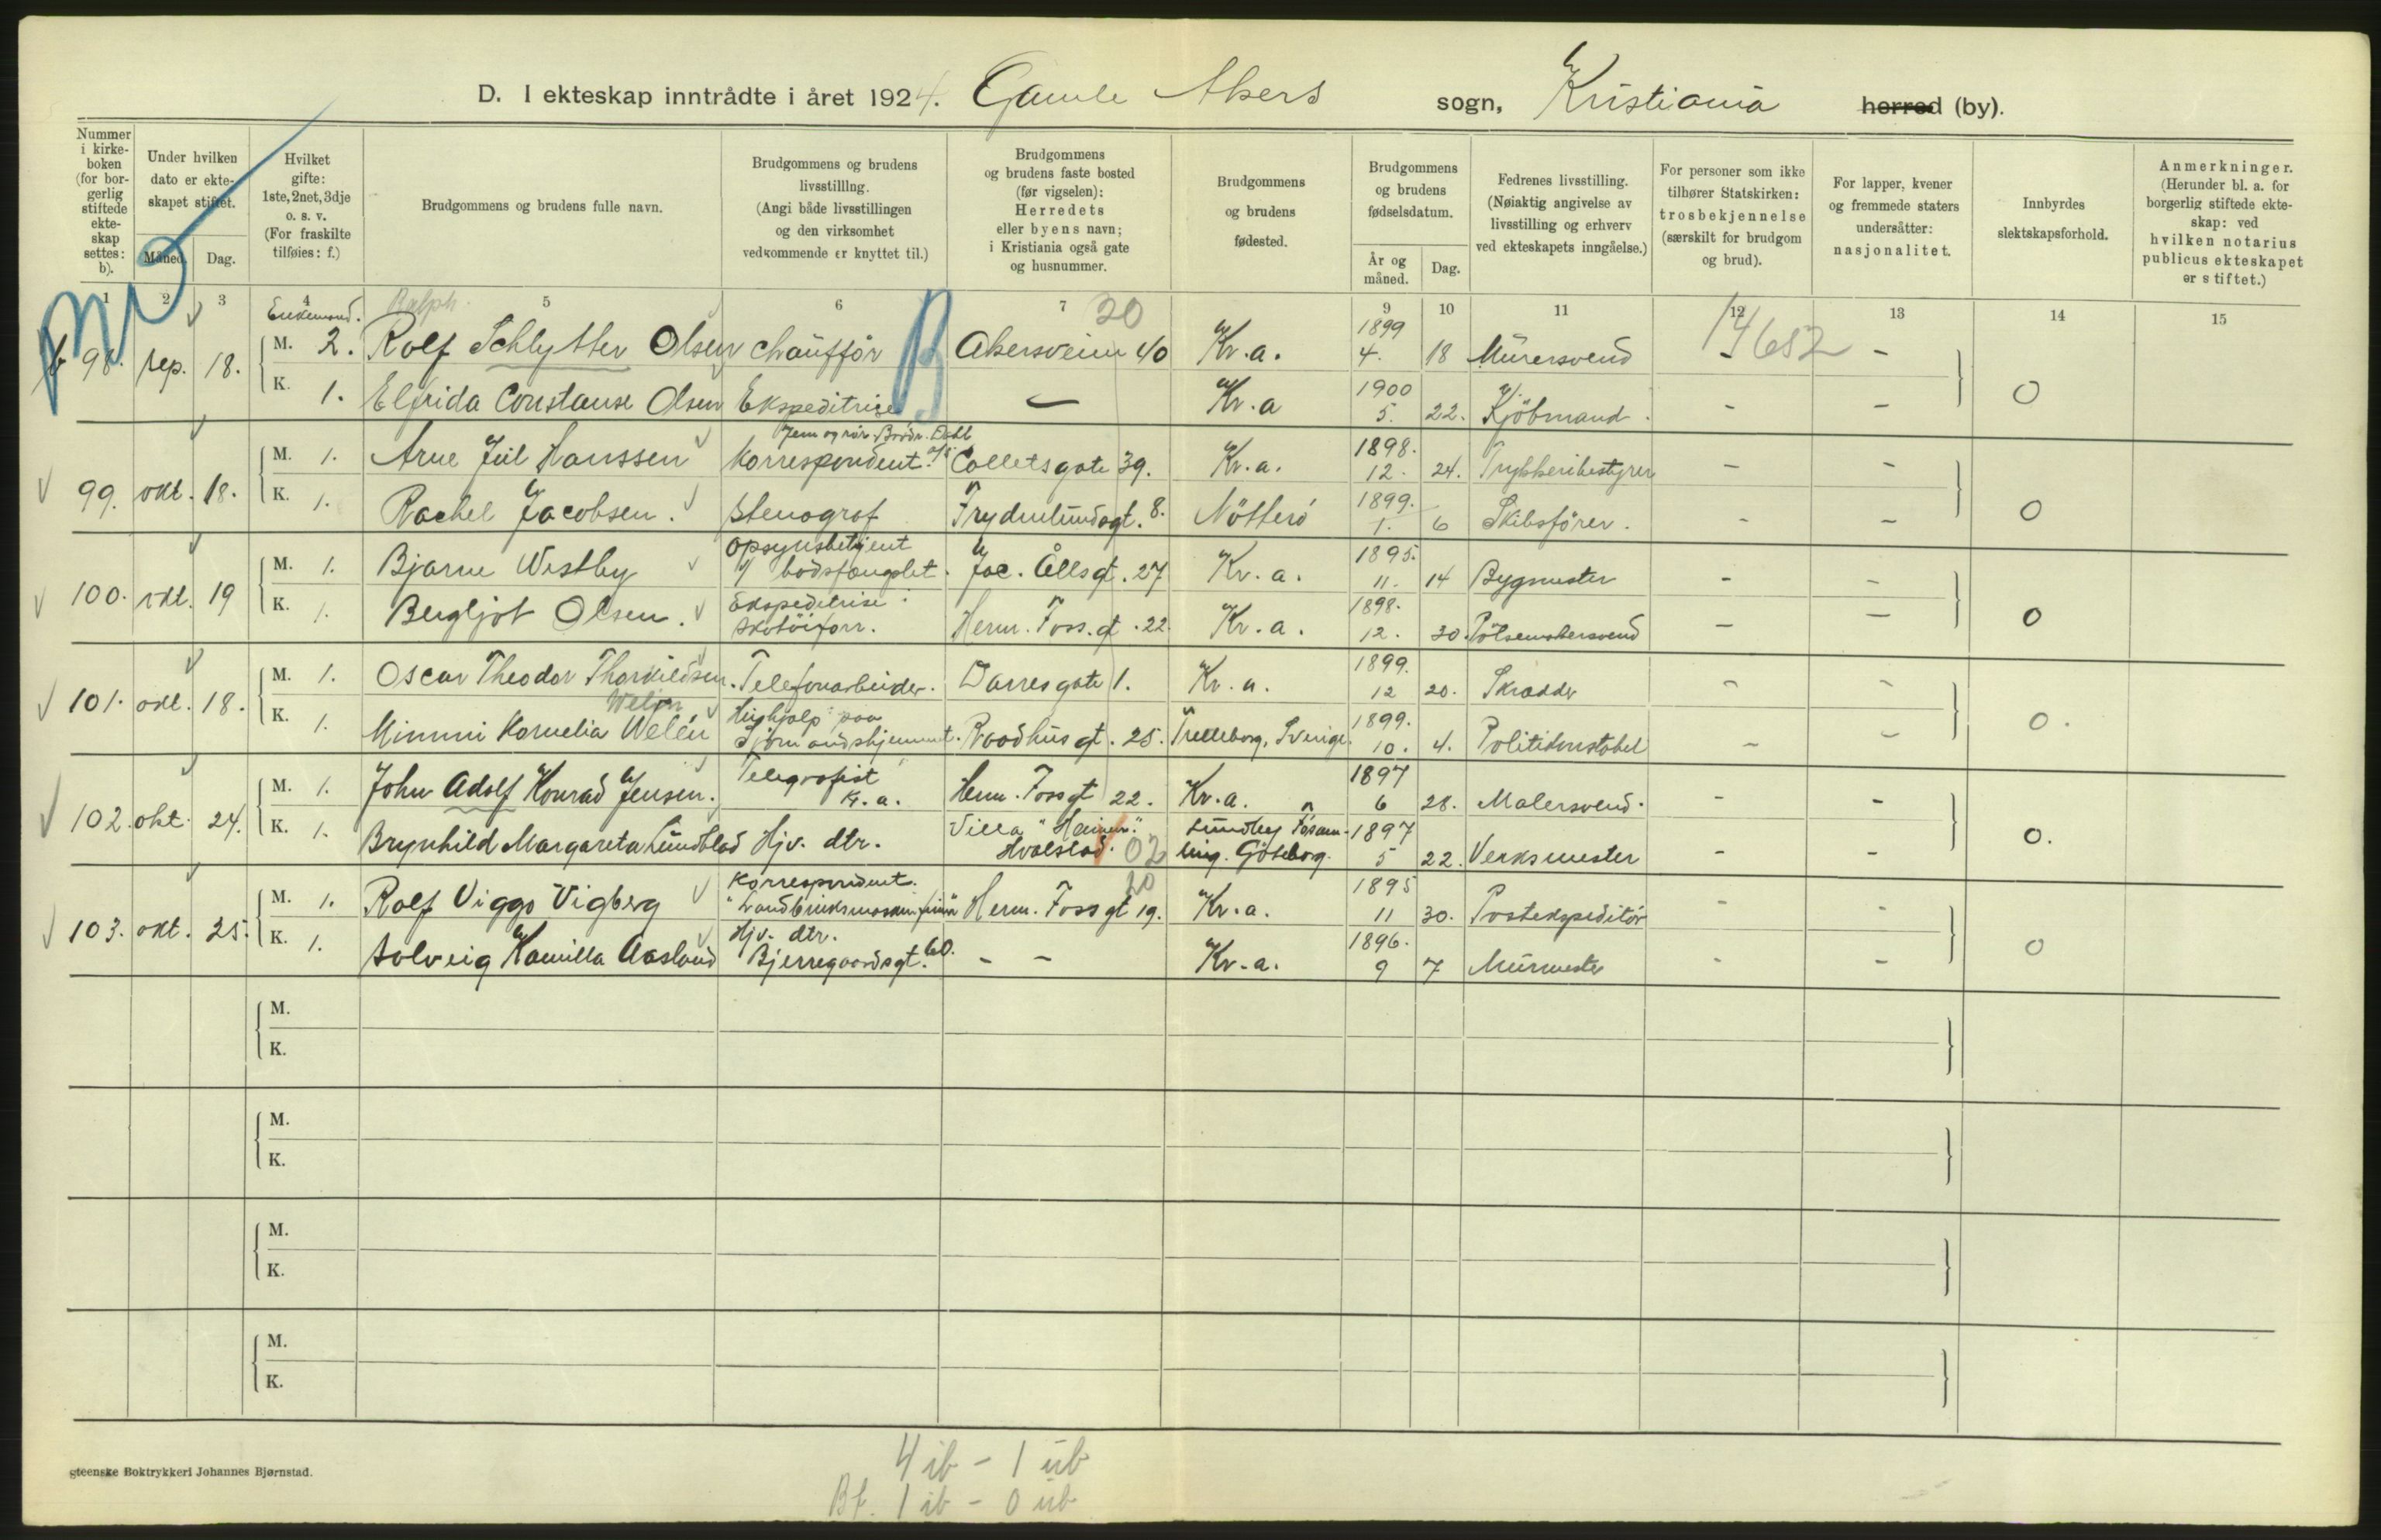 D. I ekteskap inntrådte i året 1924. Gamle Akers sogn, Kristiania herred (by).
Nummer i kirke-boken (for bor-gerlig stiftede ekte-skap settes: b).
Under hvilken dato er ekte-skapet stiftet.
Måned. Dag.
Hvilket gifte: 1ste, 2net, 3dje o. s. v. (For fraskilte tilføies: f.)
Brudgommens og brudens fulle navn.
Brudgommens og brudens livsstilllng. (Angi både livsstillingen og den virksomhet vedkommende er knyttet til.)
Brudgommens og brudens faste bosted (før vigselen): Herredets eller byens navn; i Kristiania også gate og husnummer.
Brudgommens og brudens fødested.
Brudgommens og brudens fødselsdatum.
År og måned. Dag.
Fedrenes livsstilling. (Nøiaktig angivelse av livsstilling og erhverv ved ekteskapets inngåelse.)
For personer som ikke tilhører Statskirken: trosbekjennelse (særskilt for brudgom og brud).
For lapper, kvener og fremmede staters undersåtter: nasjonalitet.
Innbyrdes slektskapsforhold.
Anmerkninger. (Herunder bl. a. for borgerlig stiftede ekte-skap: ved hvilken notarius publicus ekteskapet er stiftet.)
1 2 3 4 5 6 7 9 10 11 12 13 14 15
Enkemand. Ralph 20 1899 14682
98. sep. 18. M. 2. Rolf Schlytter Olsen chauffør B Akersveien 40 Kr.a. 4. 18 Murersvend -
K. 1. Elfrida Constanse Olsen Ekspeditrise — Kr.a 1900 5. 22. Kjöbmand. - - O
Jern og rör. Brödr. Dahl a/s
99. okt. 18. M. 1. Arne Juil Hanssen Korrespondent. Colletsgate 39. Kr.a. 1898. 12. 24. Trykkeribestyrer - -
K. 1. Rachel Jacobsen. Stenograf Frydenlundsgt. 8. Nötterö 1899. 1. 6 Skibsförer. - - O
100. okt. 19 M. 1. Bjarne Westby Opsynsbetjent v/ bodsfængslet. Jac. Ålls gt. 27 Kr.a. 1895. 11. 14 Bygmester - -
K. 1. Bergljot Olsen. Ekspeditrise i skotöiforr. Herm. Foss. gt. 22. Kr.a. 1898. 12. 30. Pölsemakersvend - - O
101. okt. 18. M. 1. Oscar Theodor Thorkildsen. Telefonarbeider. Darresgate 1. Kr.a. 1899. 12 20. Skrædder - -
Welin
K. 1. Mimmi Kornelia Welén Hushjælp paa Sjömandshjemmet. Raadhusgt. 25. Trelleborg, Sverige. 1899. 10. 4. Politikonstabel - - O.
102. okt. 24. M. 1. John Adolf Konrad Jensen. Telegrafist Kr.a. Herm. Fossgt 22. Kr.a. 1897 6 28. Malersvend. - -
K. 1. Brynhild Margareta Lundblad Hjv. dtr. Villa "Heimen". Hvalstad. 02 Lundby Församling. Göteborg. 1897 5 22. Verksmester - - O.
103. okt. 25. M. 1. Rolf Viggo Vigberg Korrespondent. 20 Herm. Fossgt 19. Kr.a. 1895 11 30. Postekspeditör - -
K. 1. Solveig Kamilla Aasland Hjv. dtr. Bjerregaardsgt. 60. - - Kr.a. 1896. 9 7 Murmester - - O
M.
K.
M.
K.
M.
K.
M.
K.
gteenske Boktrykkeri Johannes Bjørnstad.
4 ib - 1 ub
Bf. 1 ib - 0 ub